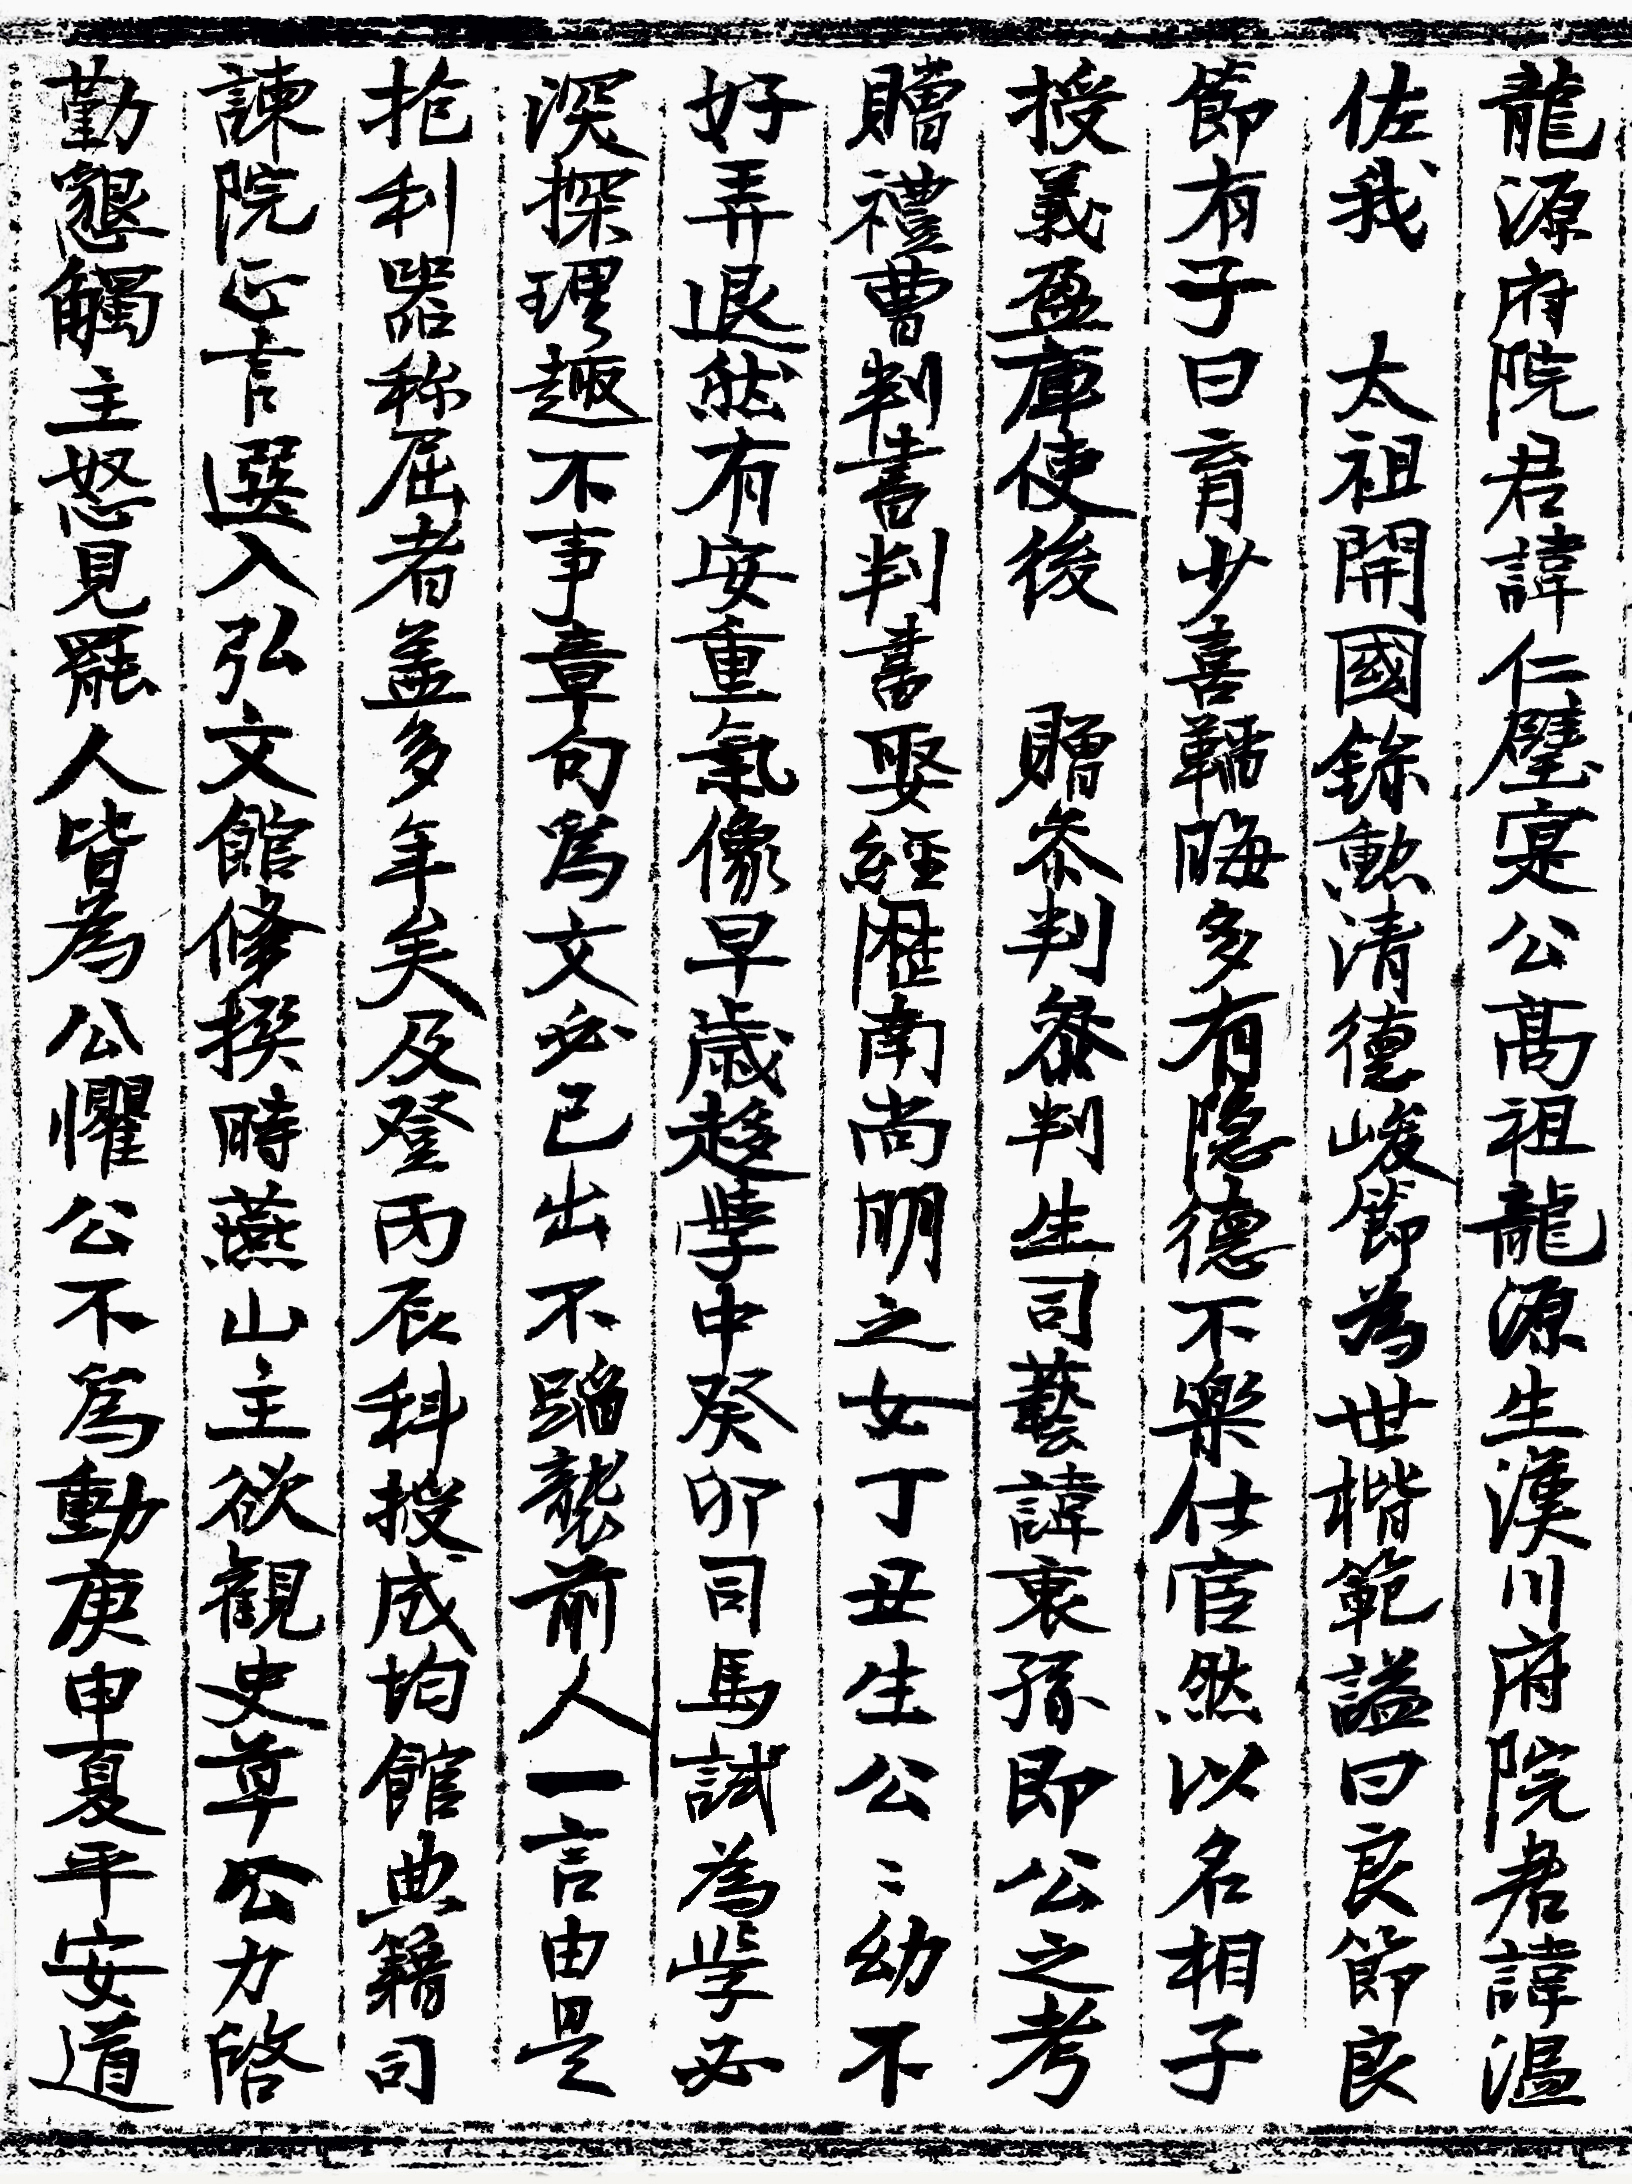 龍源府院君諱仁璧寔公高祖龍源生漢川府院君諱温
佐我 太祖開國錄勳清德峻節為世楷範謚曰良節良
節有子曰育少喜韜晦多有隐德不樂仕宦然以名相子
授義盈庫使後 贈叅判叅判生司藝諱衷孫即公之考
贈禮曹判書判書娶經歷南尚明之女丁丑生公〻幼不
好弄退然有安重氣像早歲趍學中癸卯司馬試為學必
深探理趣不事章句爲文必己出不蹈襲前人一言由是
抱利器称屈者盖多年矣及登丙辰科授成均館典籍司
諫院正言選入弘文館修撰時燕山主欲觀史草公力啓
勤懇觸主怒見罷人皆為公懼公不爲動庚申夏平安道